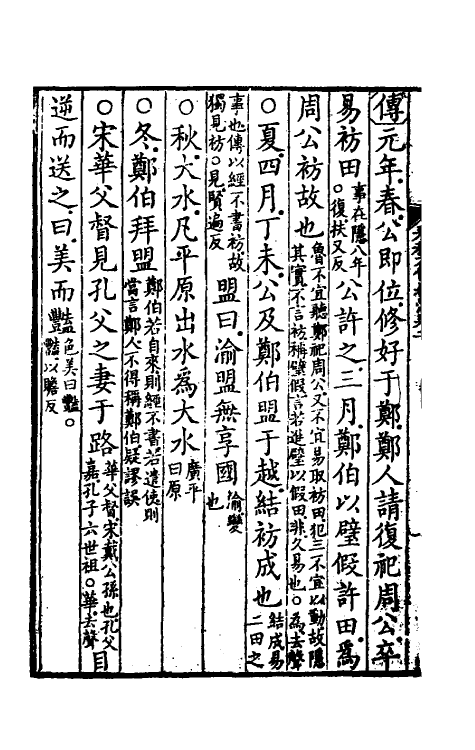 傳元年春公即位修好于鄭鄭人請復祀周公卒
易祊田事在隱八年○復扶又反公許之三月鄭伯以璧假許田為
周公祊故也魯不宜聽鄭祀周公又不宜易取祊田犯二不宜以動故隱其實不言祊稱璧假言若進璧以假田非久易也○為去聲
○夏四月丁未公及鄭伯盟于越結祊成也結成易二田之
事也傳以經不書祊故獨見祊○見賢遍反盟曰渝盟無享國渝變也
○秋大水凡平原出水為大水廣平曰原
○冬鄭伯拜盟鄭伯若自來則經不書若遣使則當言鄭人不得稱鄭伯疑謬誤
○宋華父督見孔父之妻于路華父督宋戴公孫也孔父嘉孔子六世祖○華去聲目
逆而送之曰美而豔色美曰豔○豔以贍反